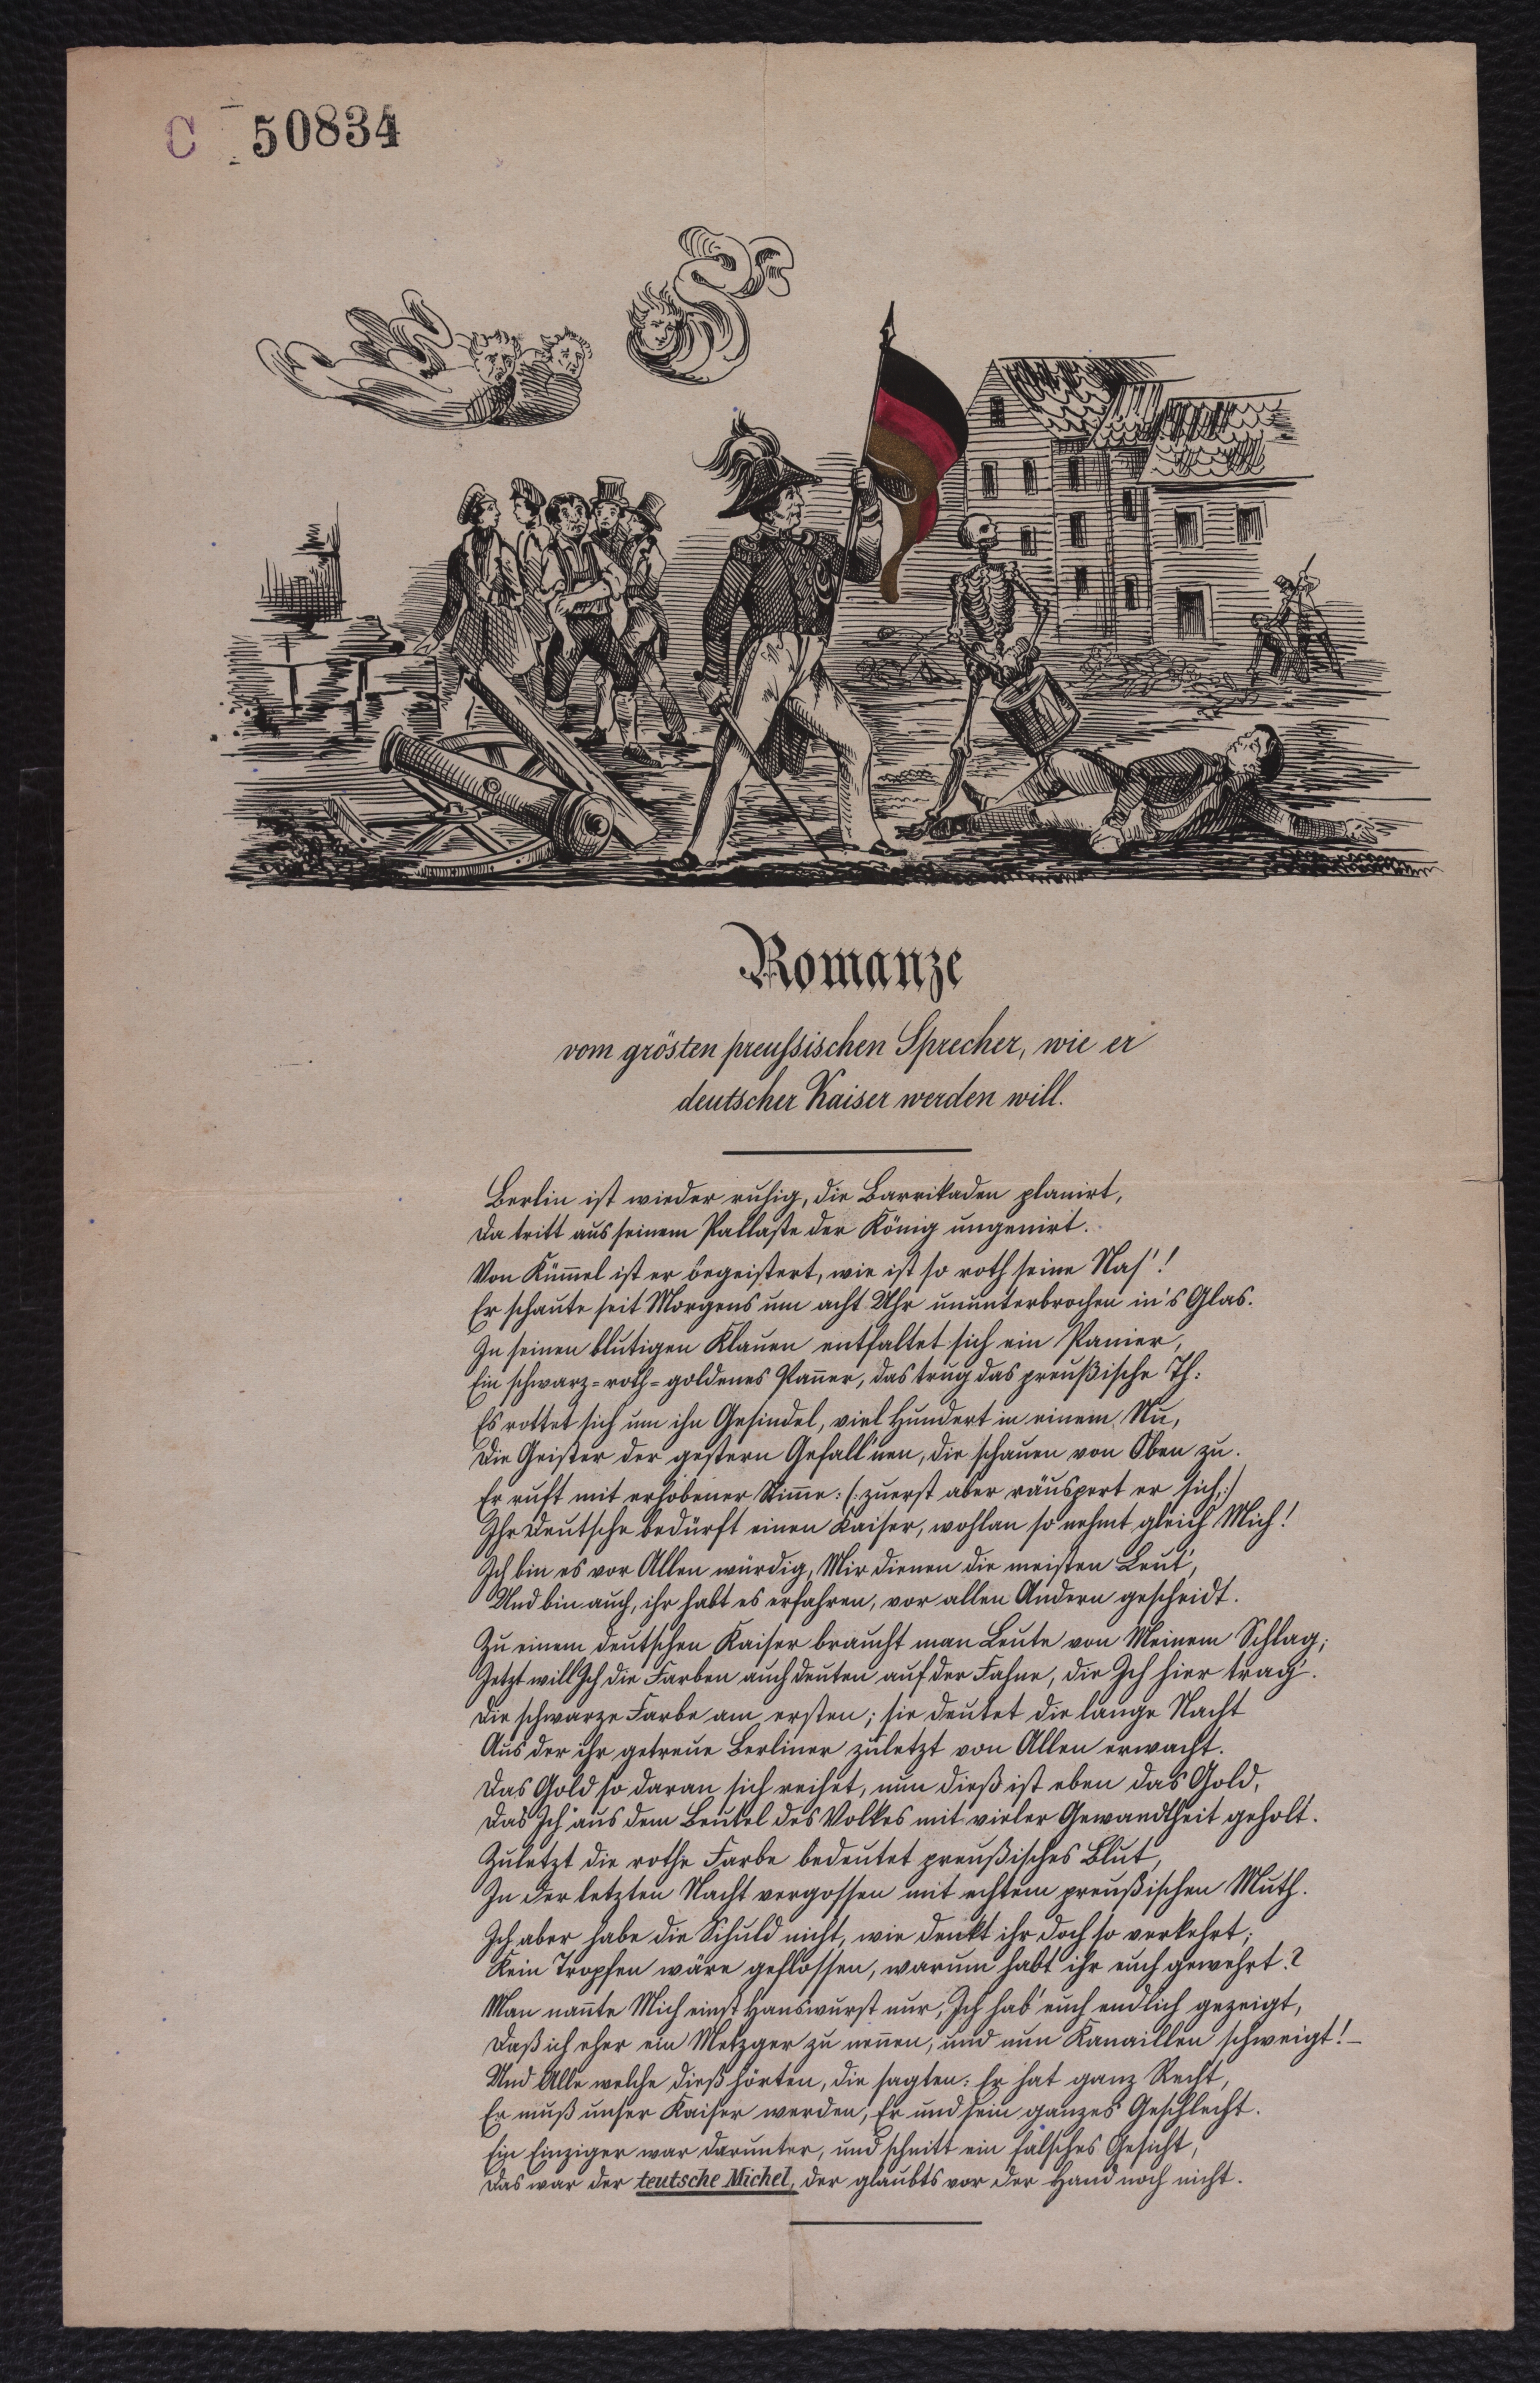 C 50834
Romanze
vom grösten preussischen Sprecher, wie er
deutscher Kaiser werden will.
Berlin ist wieder ruhig, die Barrikaden planirt,
Da tritt aus seinem Pallaste der König ungenirt.
Von Kümmel ist er begeistert, wie ist so roth seine Nas'!
Er schaute seit Morgens um acht Uhr ununterbrochen in's Glas.
In seinen blutigen Klauen entfaltet sich ein Panier,
Ein schwarz-roth-goldenes Panner, das trug das preußische Th:
Es rottet sich um ihn Gesindel, viel Hundert in einem Nu,
Die Geister der gestern Gefall'nen, die schauen von Oben zu.
Er ruft mit erhobener Stimme: (:zuerst aber räuspert er sich,:)
Ihr Deutsche bedürft einen Kaiser, wohlan so nehmt gleich Mich!
Ich bin es vor Allen würdig, Mir dienen die meisten Leut',
Und bin auch, ihr habt es erfahren, vor allen Andern gescheidt.
Zu einem deutschen Kaiser braucht man Leute von Meinem Schlag;
Jetzt will Ich die Farben auch deuten auf der Fahne, die Ich hier trag'.
Die schwarze Farbe am ersten; sie deutet die lange Nacht
Aus der ihr getreue Berliner zuletzt von Allen erwacht.
Das Gold so daran sich reihet, nun dieß ist eben das Gold,
Das Ich aus dem Beutel des Volkes mit vieler Gewandtheit geholt.
Zuletzt die rothe Farbe bedeutet preußisches Blut,
In der letzten Nacht vergossen mit echtem preußischen Muth.
Ich aber habe die Schuld nicht, wie denkt ihr doch so verkehrt;
Kein Tropfen wäre geflossen, warum habt ihr euch gewehrt?
Man nannte Mich einst Hanswurst nur, Ich hab' euch endlich gezeigt,
Daß ich eher ein Metzger zu nennen, und nun Kanaillen schweigt!—
Und Alle welche dieß hörten, die sagten: Er hat ganz Recht,
Er muß unser Kaiser werden, Er und sein ganzes Geschlecht.
Ein Einziger war darunter, und schnitt ein falsches Gesicht,
Das war der teutsche Michel, der glaubts vor der Hand noch nicht.